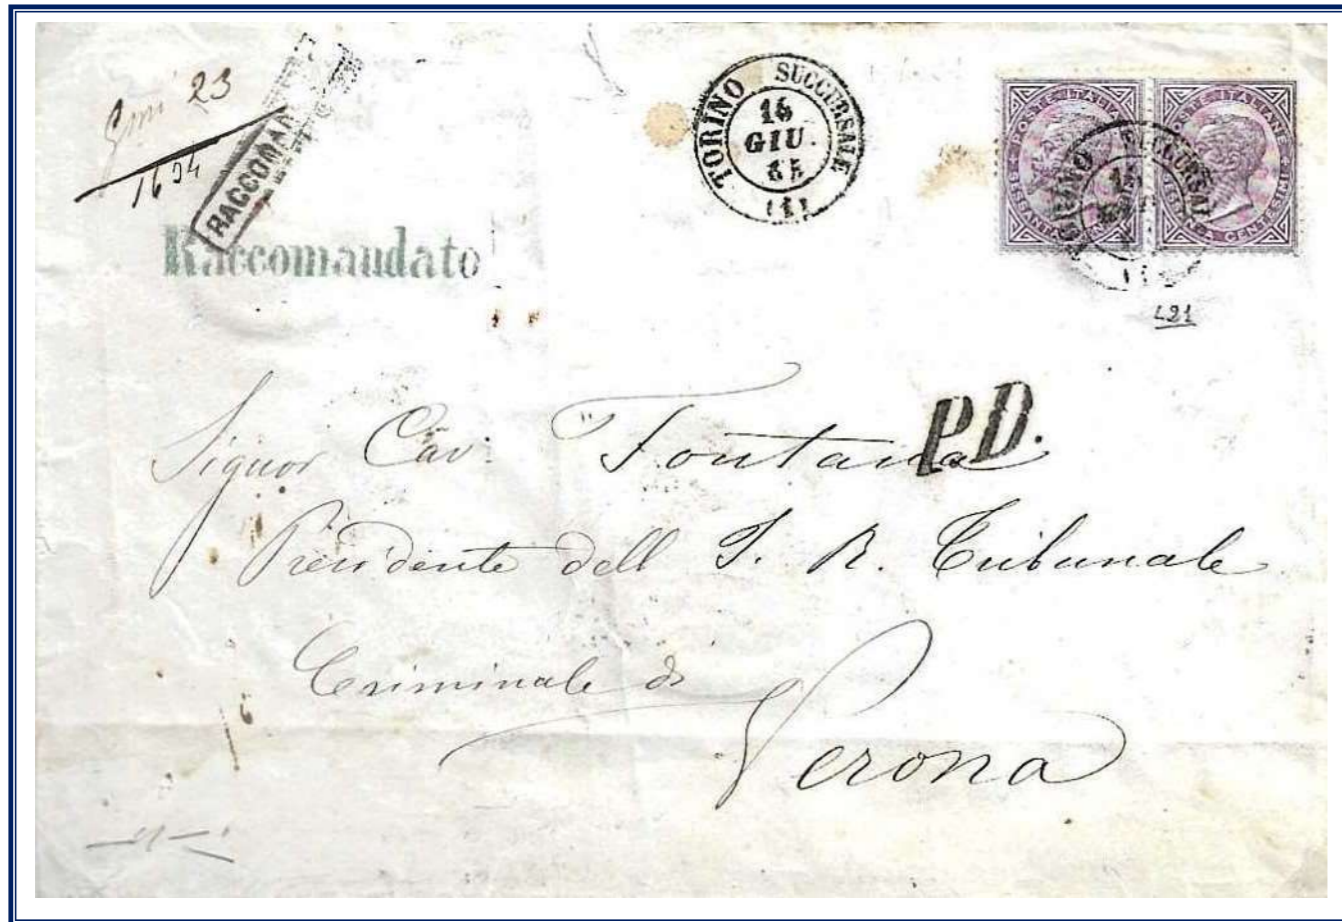 Gmi 23
1694
RACCOMAN
Raccomandato
TORINO SUCCURSALE
16
GIU.
65
(1)
POSTE ITALIANE
SESSANTA CENTESIMI
POSTE ITALIANE
SESSANTA CENTESIMI
TORINO SUCCURSAL
L21
P.D.
Signor Cav: Fontana
Presidente dell I. R. Tribunale
Criminale di
Verona